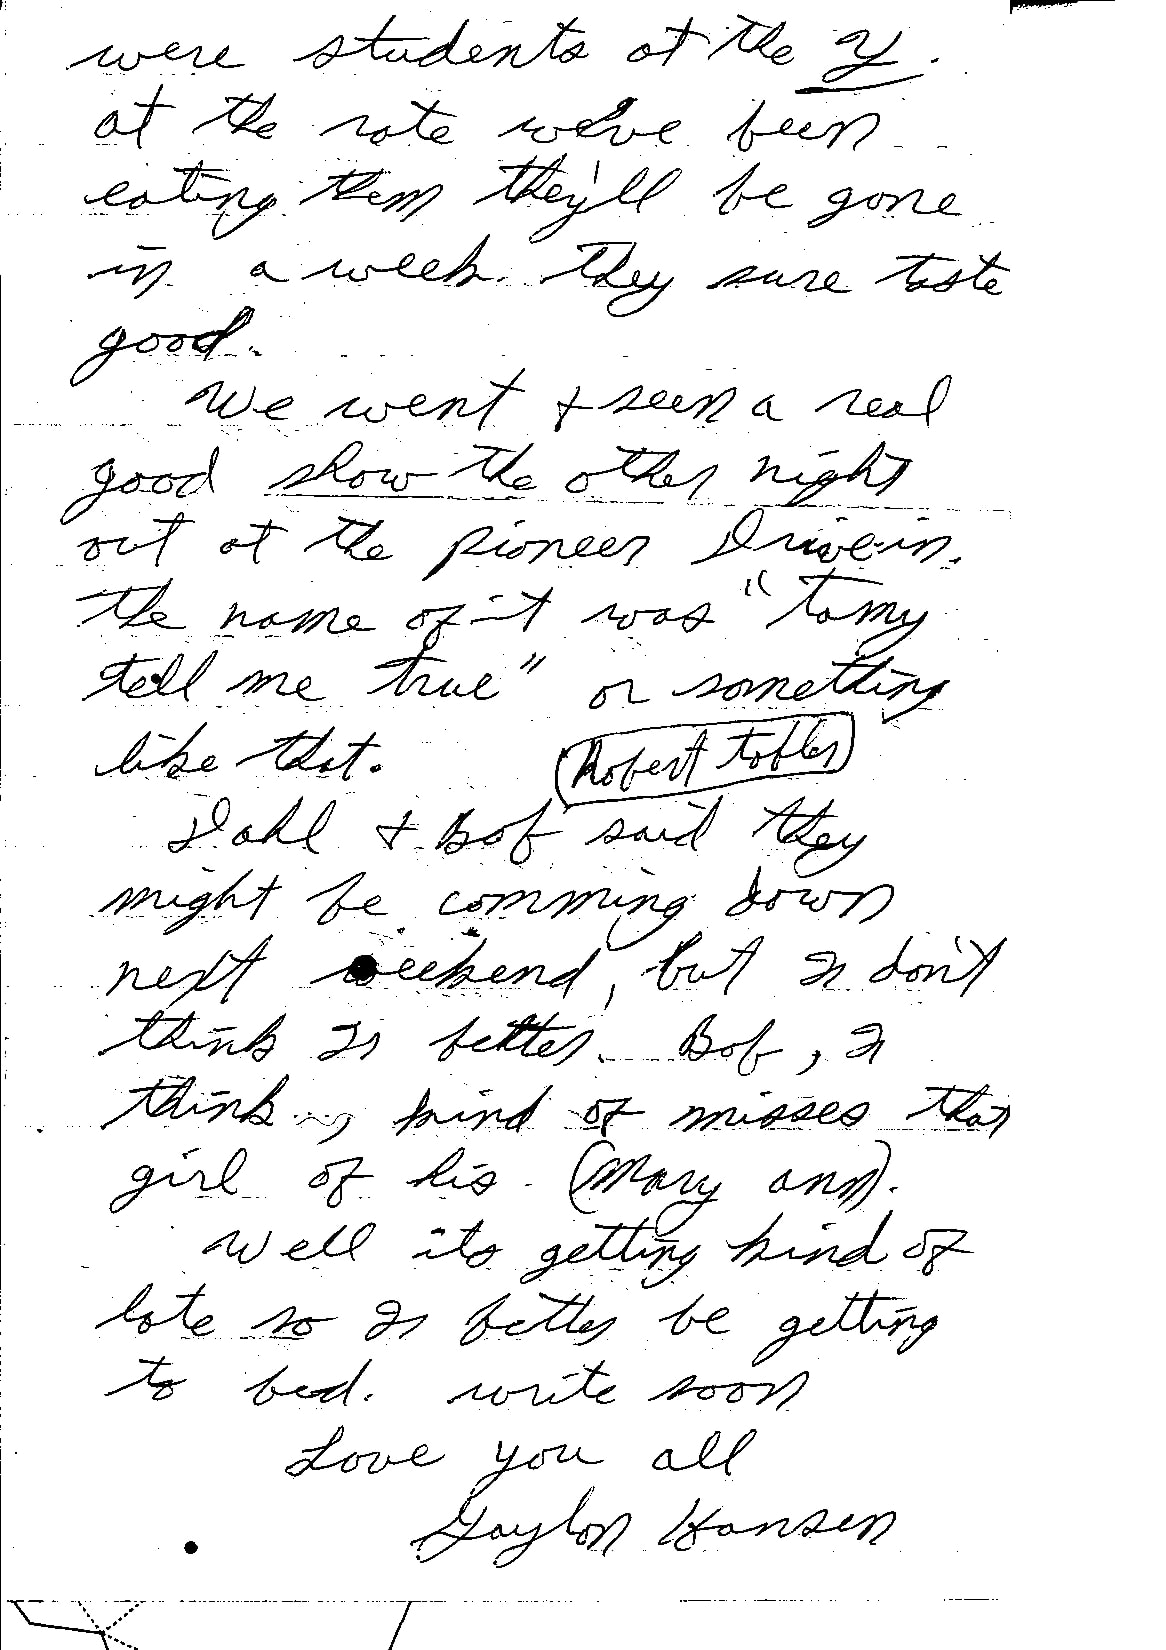 were students at the Y.
at the rate we've been
eating them they'll be gone
in a week. They sure taste
good.
We went & seen a real
good show the other night
out at the pioneer Drive-in.
the name of it was "tamy
tell me true" or something
like that.
(Robert Tobler)
Dahl & Bob said they
might be comming down
next weekend, but I don't
think Is better. Bob, I
think, kind of misses that
girl of his. (Mary ann).
Well its getting kind of
late so Is better be getting
to bed. write soon
Love you all
Gaylon Hansen